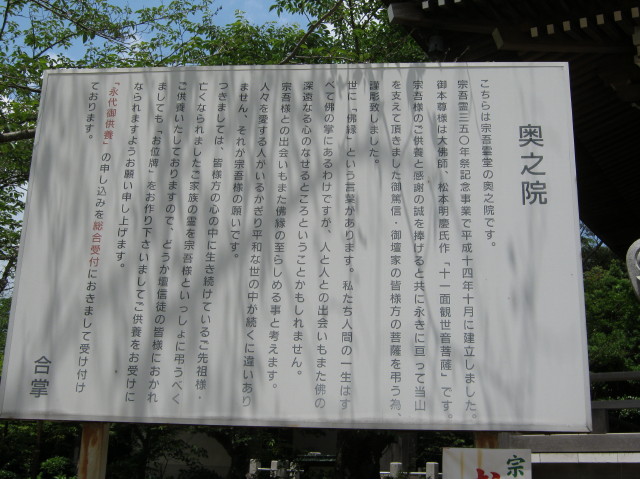 奥之院
こちらは宗吾霊堂の奥之院です。
宗吾霊三五〇年祭記念事業で平成十四年十月に建立しました。
御本尊様は大佛師、松本明慶氏作「十一面観世音菩薩」です。
宗吾様のご供養と感謝の誠を捧げると共に永きに亘って当山
を支えて頂きました御篤信・御壇家の皆様方の菩薩を弔う為、
謹彫致しました。
世に「佛縁」という言葉があります。私たち人間の一生はす
べて佛の掌にあるわけですが、人と人との出会いもまた佛の
深遠なる心のなせるところということかもしれません。
宗吾様との出会いもまた佛縁の至らしめる事と考えます。
人々を愛する人がいるかぎり平和な世の中が続くに違いあり
ません、それが宗吾様の願いです。
つきましては、皆様方の心の中に生き続けているご先祖様・
亡くなられましたご家族の霊を宗吾様といっしょに弔うべく
ご供養いたしておりますので、どうか壇信徒の皆様におかれ
ましても「お位牌」をお作り下さいましてご供養をお受けに
なられますようお願い申し上げます。
「永代御供養」の申し込みを総合受付におきまして受け付け
ております。
合掌
宗